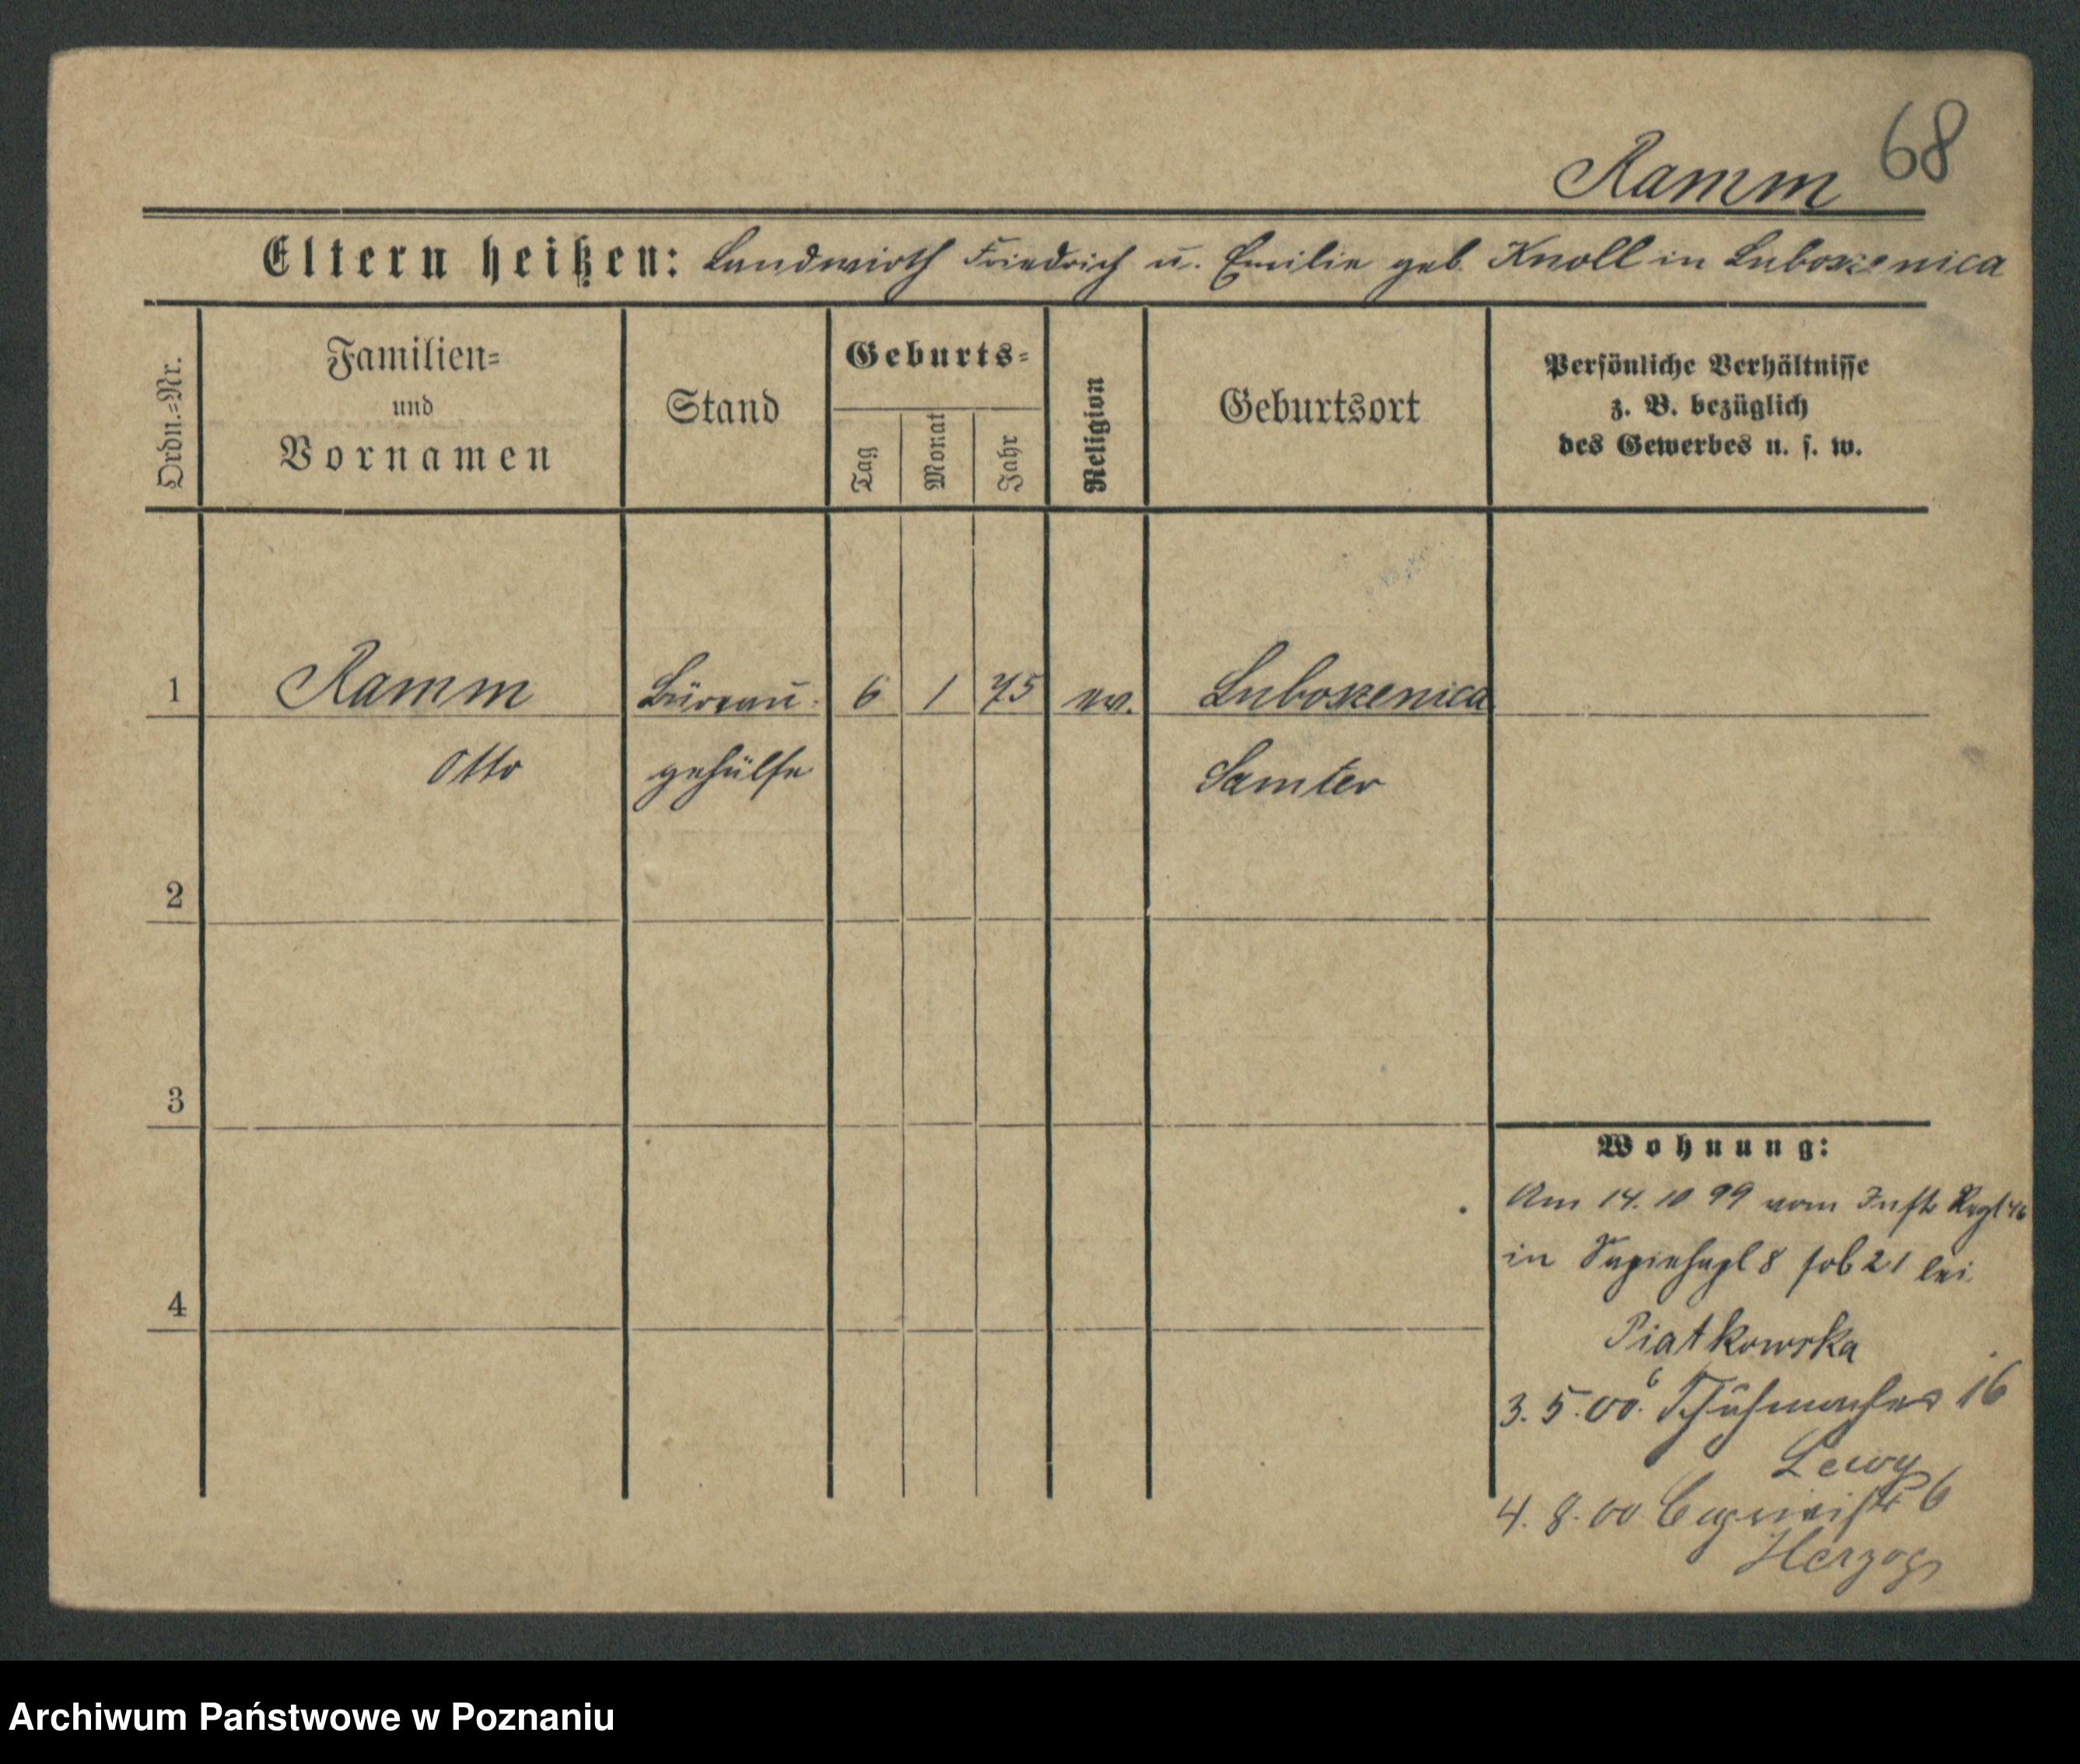 68
Ramm
Eltern heißen: Landwirth Friedrich u. Emilie geb. Knoll in Luboszenica
Ordn.=Nr.
Familien=
und
Vornamen
Stand
Geburts=
Tag
Monat
Jahr
Religion
Geburtsort
Persönliche Verhältnisse
z. B. bezüglich
des Gewerbes u. s. w.
1 Ramm Büreau- 6 1 75 ev. Luboszenica
Otto gehülfe Samter
2
3
4
Wohnung:
Am 14. 10 99 vom Inftr Regt 46
in Sapiehapl 8 bei
Piatkowska
3. 5. 00. Schuhmacher 16
Lewy
4. 8. 00 6
Herzog
Archiwum Państwowe w Poznaniu